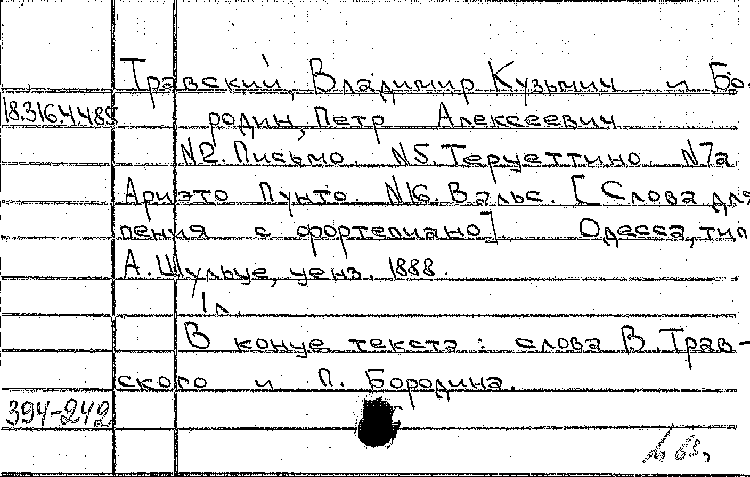 Травский, Владимир Кузьмич и Бо-
18.316.4.485
родин, Петр Алексеевич
N2. Письмо. N5. Терцеттино. N7а
Ариэто Пунто. N16. Вальс. [Слова для
пения с фортепиано]. Одесса, тип.
А. Шульце, ценз. 1888.
1л.
В конце текста: слова В. Трав-
ского и П. Бородина.
394-242